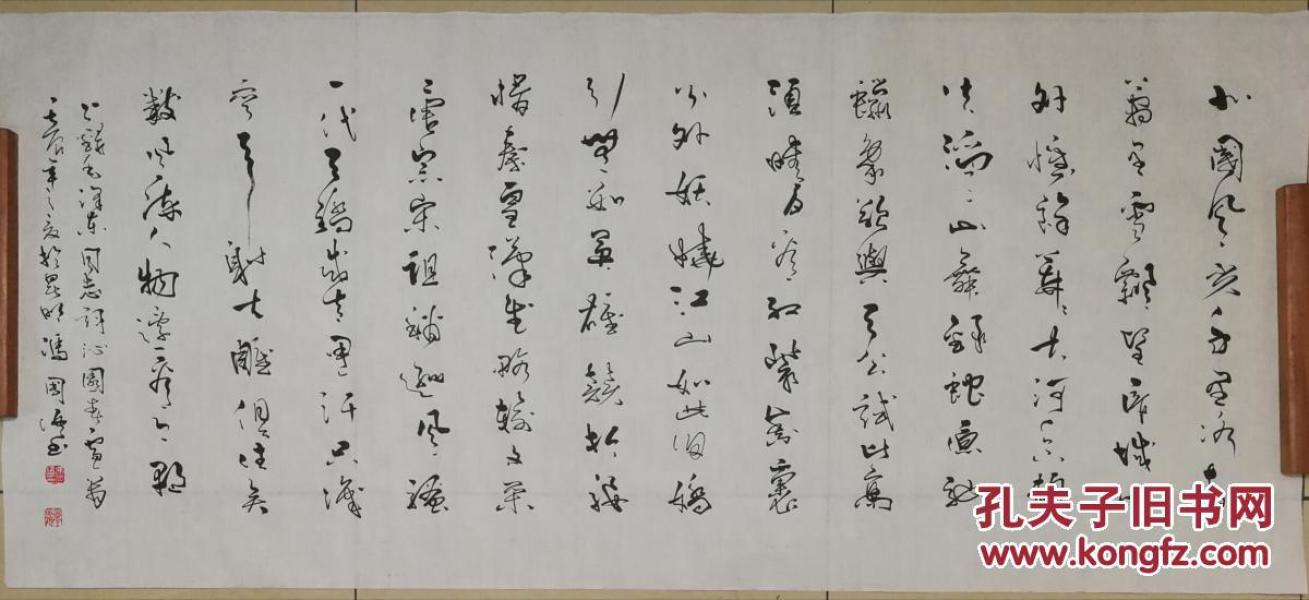 北國風光千里冰封
萬里雪飄望長城內
外惟餘莽〻大河上下頓
失滔〻山舞銀蛇原馳
蠟象欲與天公試比高
須晴日看紅裝素裹
分外妖嬈江山如此多嬌
引無數英雄競折腰
惜秦皇漢武略輸文采
唐宗宋祖稍遜風騷
一代天驕成吉思汗只識
彎弓射大雕俱往矣
數風流人物還看今朝
錄毛澤東同志詞沁園春雪一首
壬辰年之夏於昆明馮國書
孔夫子旧书网
www.kongfz.com